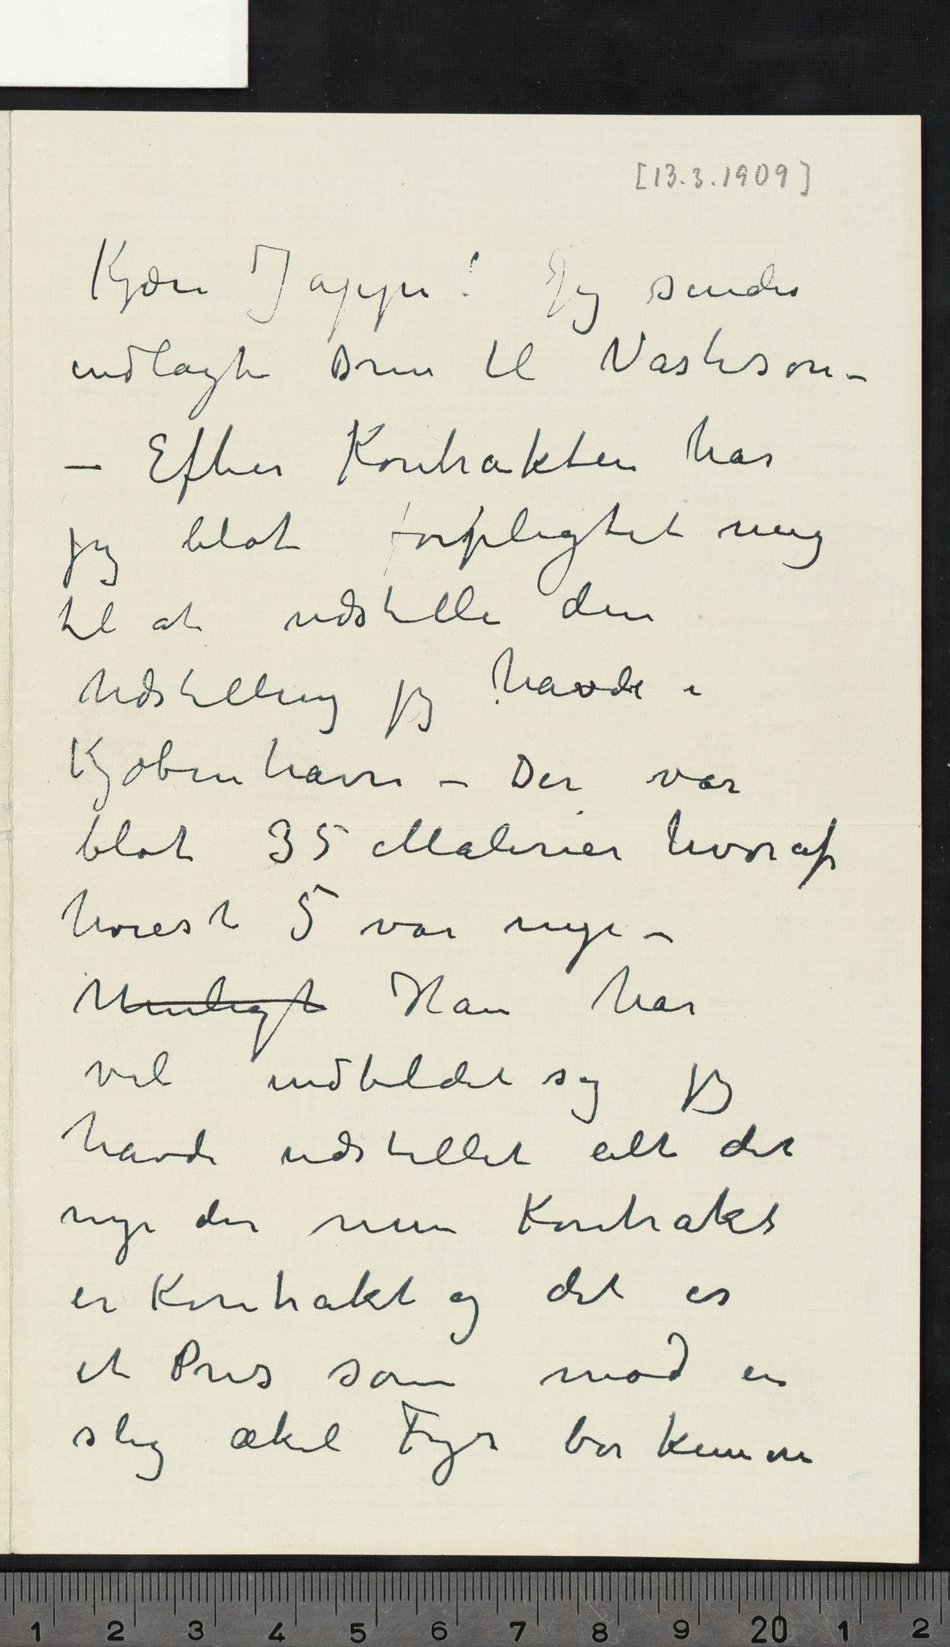 [13.3.1909]
Kjære Jappe! Jeg sender
indlagte Brev til
– Efter Kontrakten har
jeg blot forpligtet mig
til at udstille den
Udstilling jeg havde i
Kjøbenhavn – Der var
blot 35 Malerier hvoraf
høiest 5 var nye –
Han har
vel indbildet sig jeg
havde udstillet alt det
nye der men Kontrakt
er Kontrakt og det er
et som mod en
slig ækel Fyr bør
1 2 3 4 5 6 7 8 9 20 1 2